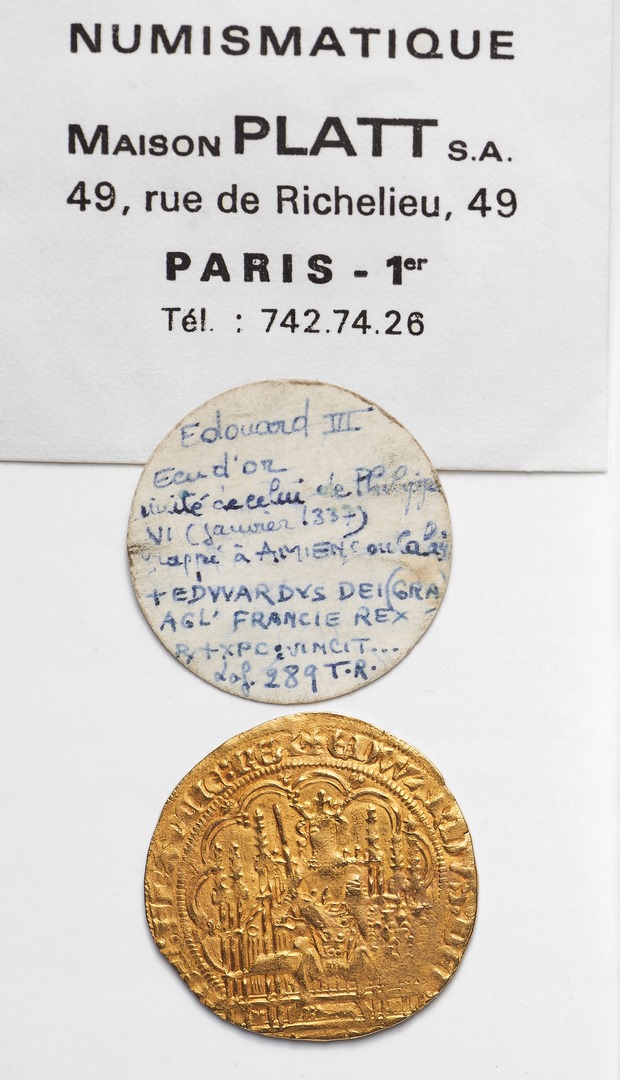 NUMISMATIQUE
MAISON PLATT S.A.
49, rue de Richelieu, 49
PARIS - 1er
Tél. : 742.74.26
Edouard III
Ecu d'or
imité de celui de Philippe
VI (Janvier 1337)
frappé à AMIENS ou
+EDVVARDVS DEI (GRA)
AGL' FRANCIE REX
R/+XPC:VINCIT...
Laf. 289 T.R.